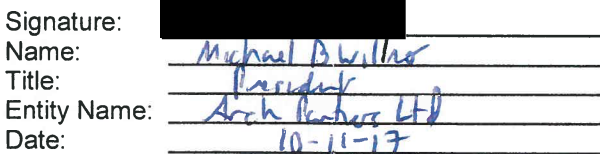 Signature:
Name: Michael B
Title: President
Entity Name: Arch Partners Ltd
Date: 10-11-17